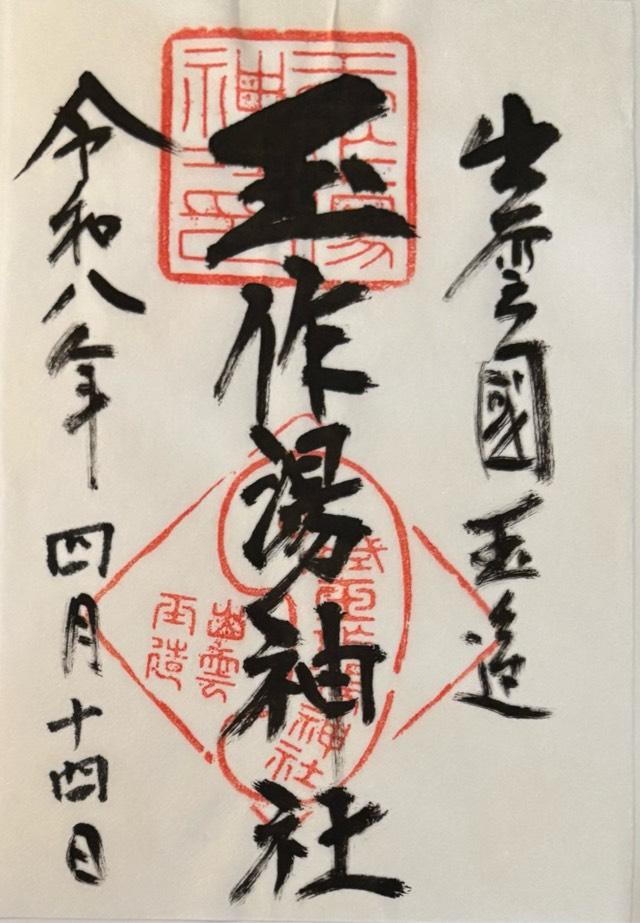 出雲國玉造
玉作湯神社
令和八年 四月十四日
出雲
玉造
式内玉作湯
神社